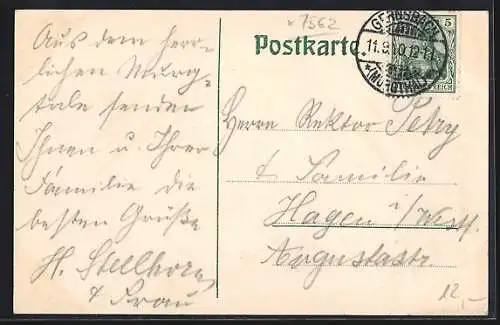 v 7562
Postkarte
GERNSBACH
11.9.10.12-1
(MURGTHAL)
5
REICH
Aus dem herr-
lichen Murg-
tale senden
Ihnen u. Ihrer
Familie die
besten Grüße
H. Stellhorn
& Frau
Herrn Rektor Petry
& Familie
Hagen i/Westf.
Augustastr.
12,-